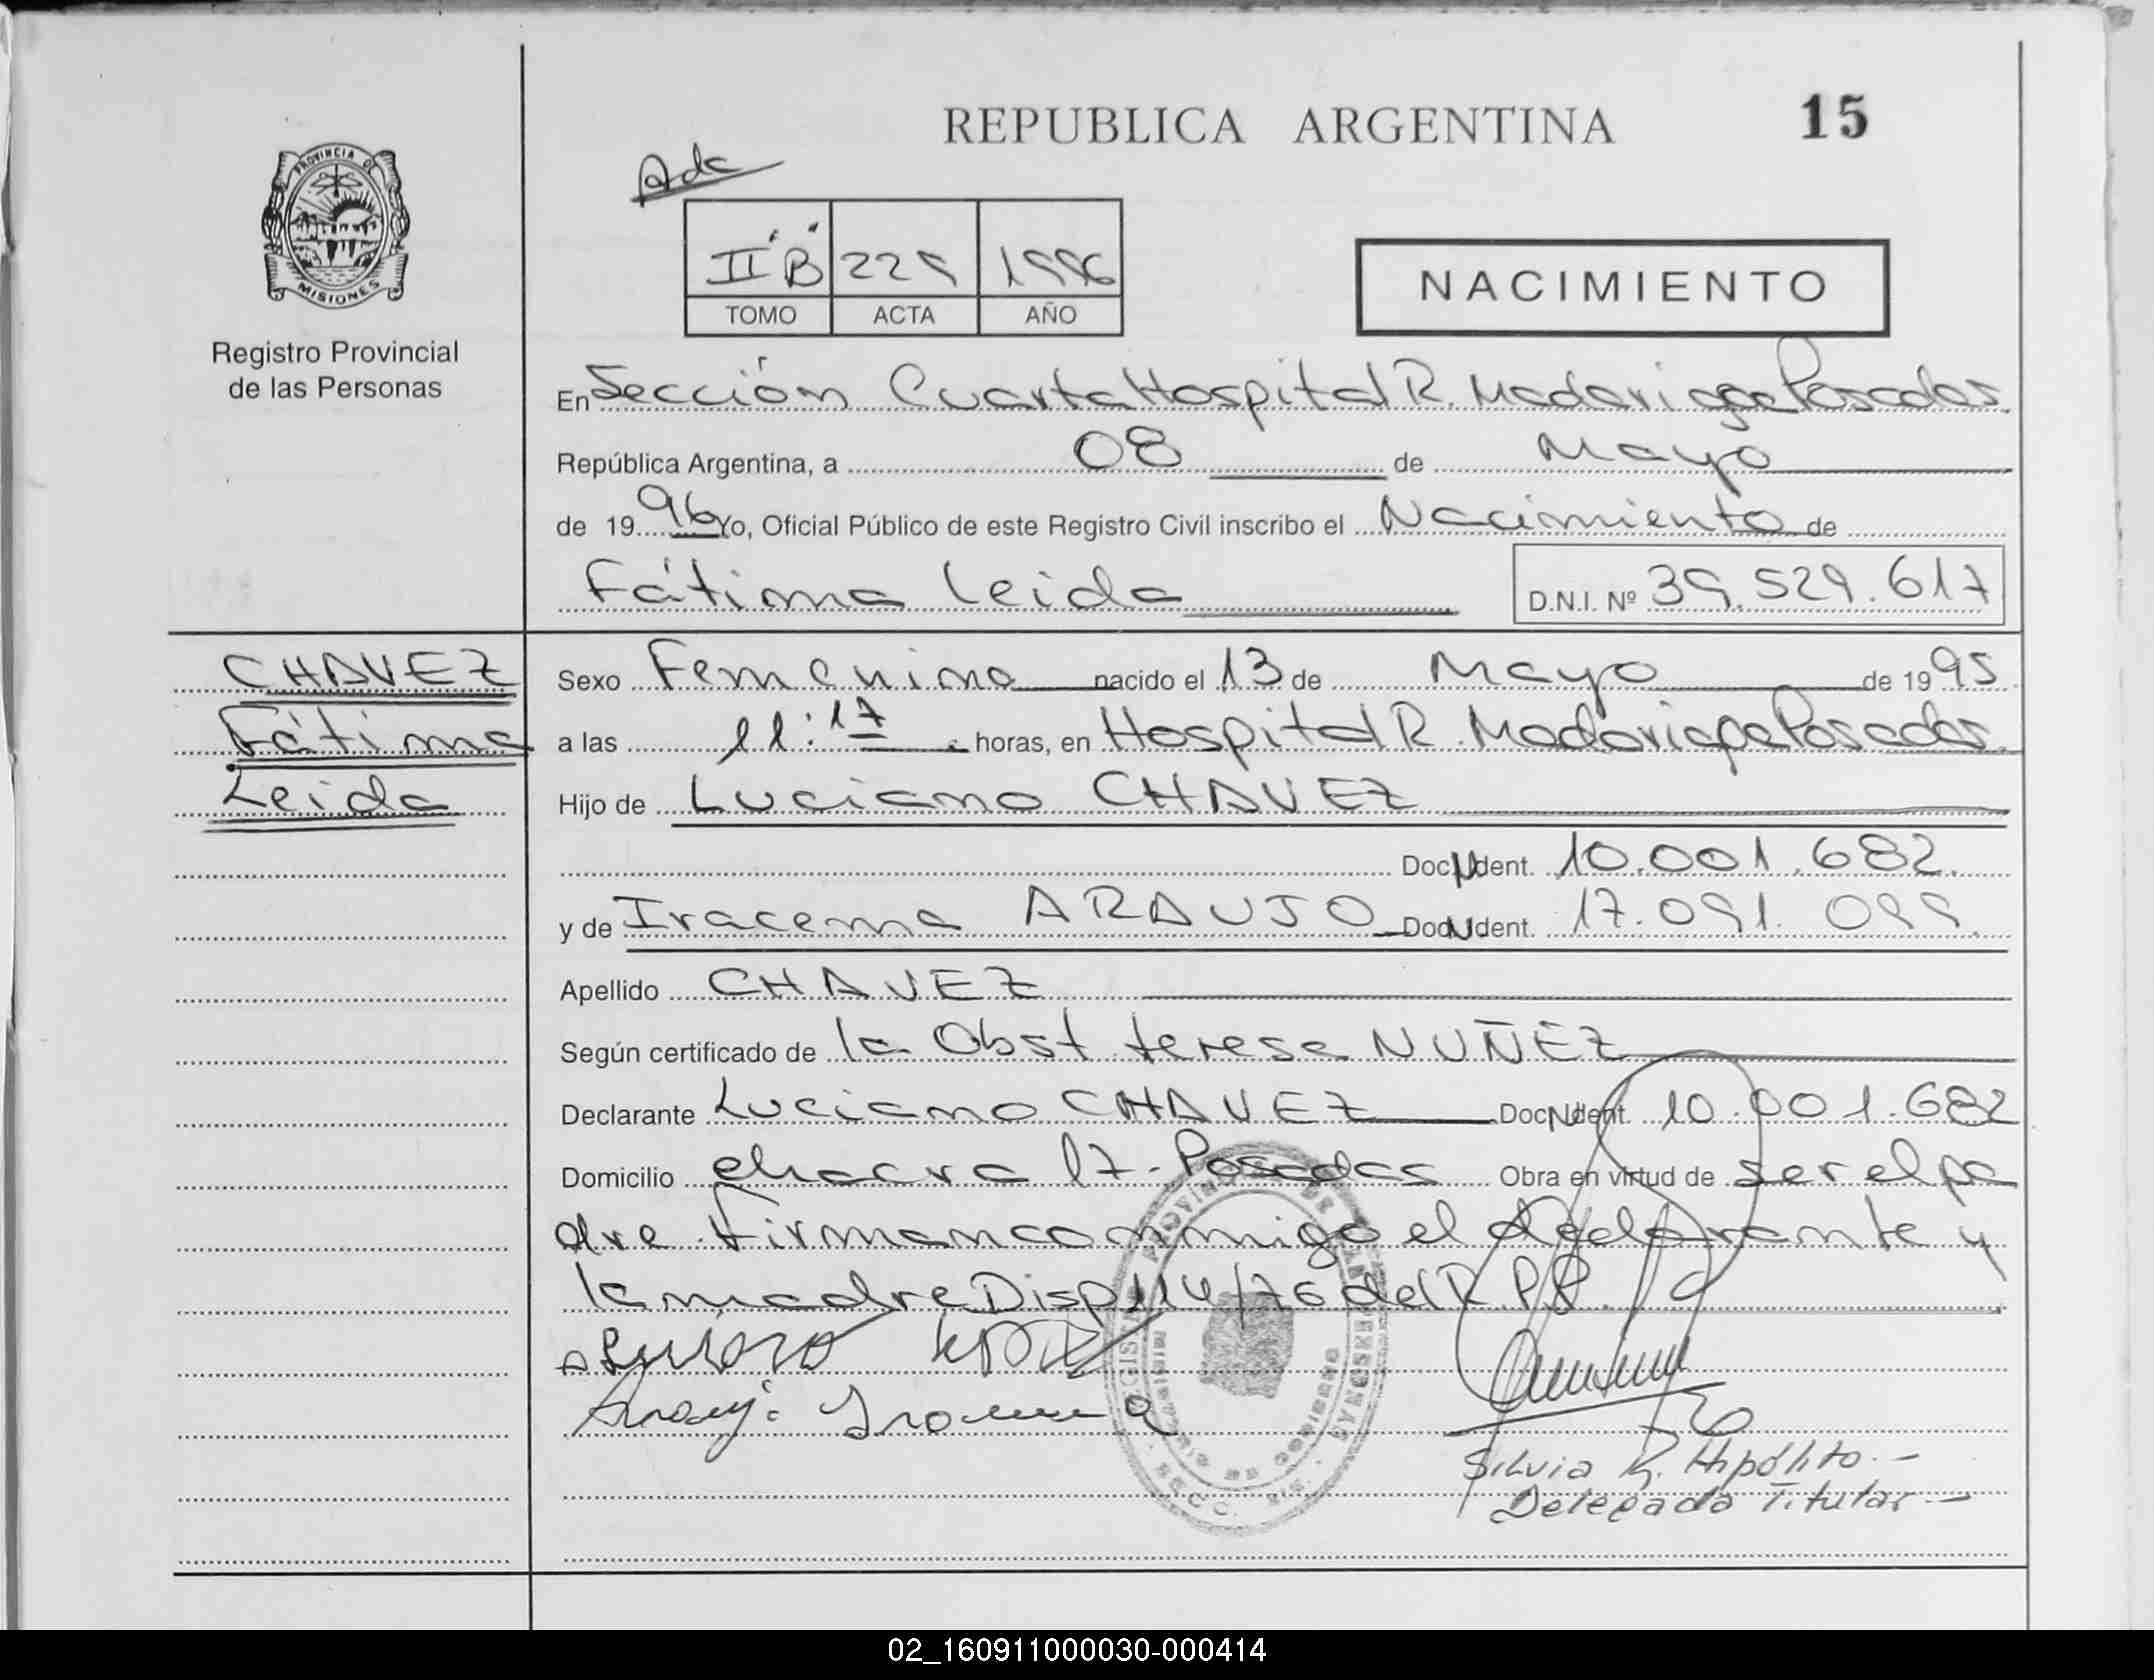 REPUBLICA ARGENTINA
15
PROVINCIA DE
MISIONES
Registro Provincial
de las Personas
II "B" 229 1996
TOMO ACTA AÑO
NACIMIENTO
En Sección Cuarta Hospital R. Madariaga Posadas
República Argentina, a 08 de Mayo
de 1996 Yo, Oficial Público de este Registro Civil inscribo el Nacimiento de
Fátima Leida D.N.I. Nº 39.529.617
CHAVEZ
Fátima
Leida
Sexo Femenino nacido el 13 de Mayo de 1995
a las 11:17 horas, en Hospital R. Madariaga Posadas
Hijo de Luciano CHAVEZ
Doc. Ident. 10.001.682.
y de Iracema ARAUJO Doc. Ident. 17.091.099.
Apellido CHAVEZ
Según certificado de la Obst Teresa NUÑEZ
Declarante Luciano CHAVEZ Doc. Ident. 10.001.682
Domicilio chacra 17-Posadas Obra en virtud de ser el pa
dre Firman conmigo el declarante y
la madre Disp 114/76 del R.P.P.
Silvia R. Hipólito.-
Delegada Titular.-
02_160911000030-000414